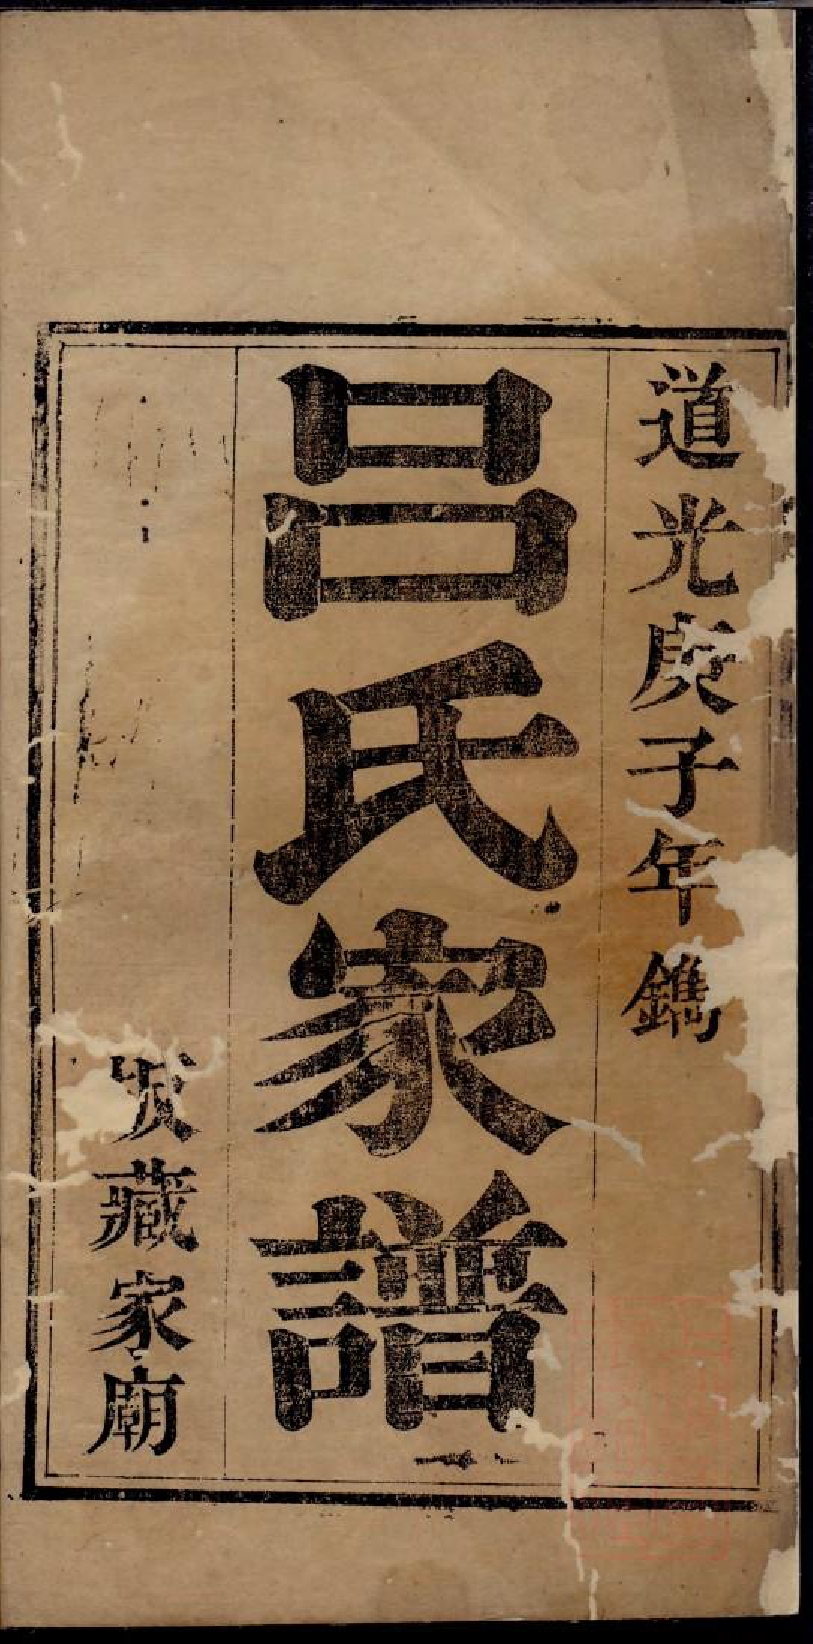 道光庚子年鐫
呂氏家譜
藏家廟